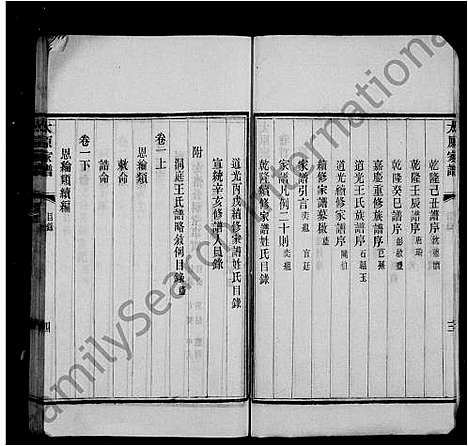 太原家譜
目錄
三
乾隆己丑譜序
乾隆壬辰譜序
乾隆癸巳譜序 彭啟豐
嘉慶重修族譜序
道光王氏族譜序 石韞玉
道光續修家譜序
續修家譜募啟
家譜引言 奕組
家譜凡例二十則 奕組
乾隆續修家譜姓氏目錄
道光丙戌續修家譜姓氏目錄
宣統辛亥修譜人員錄
附
洞庭王氏譜略敘例目錄
卷一上
恩綸類
敕命
誥命
卷一下
恩綸類續編
太原家譜
目錄
四
FamilySearch International